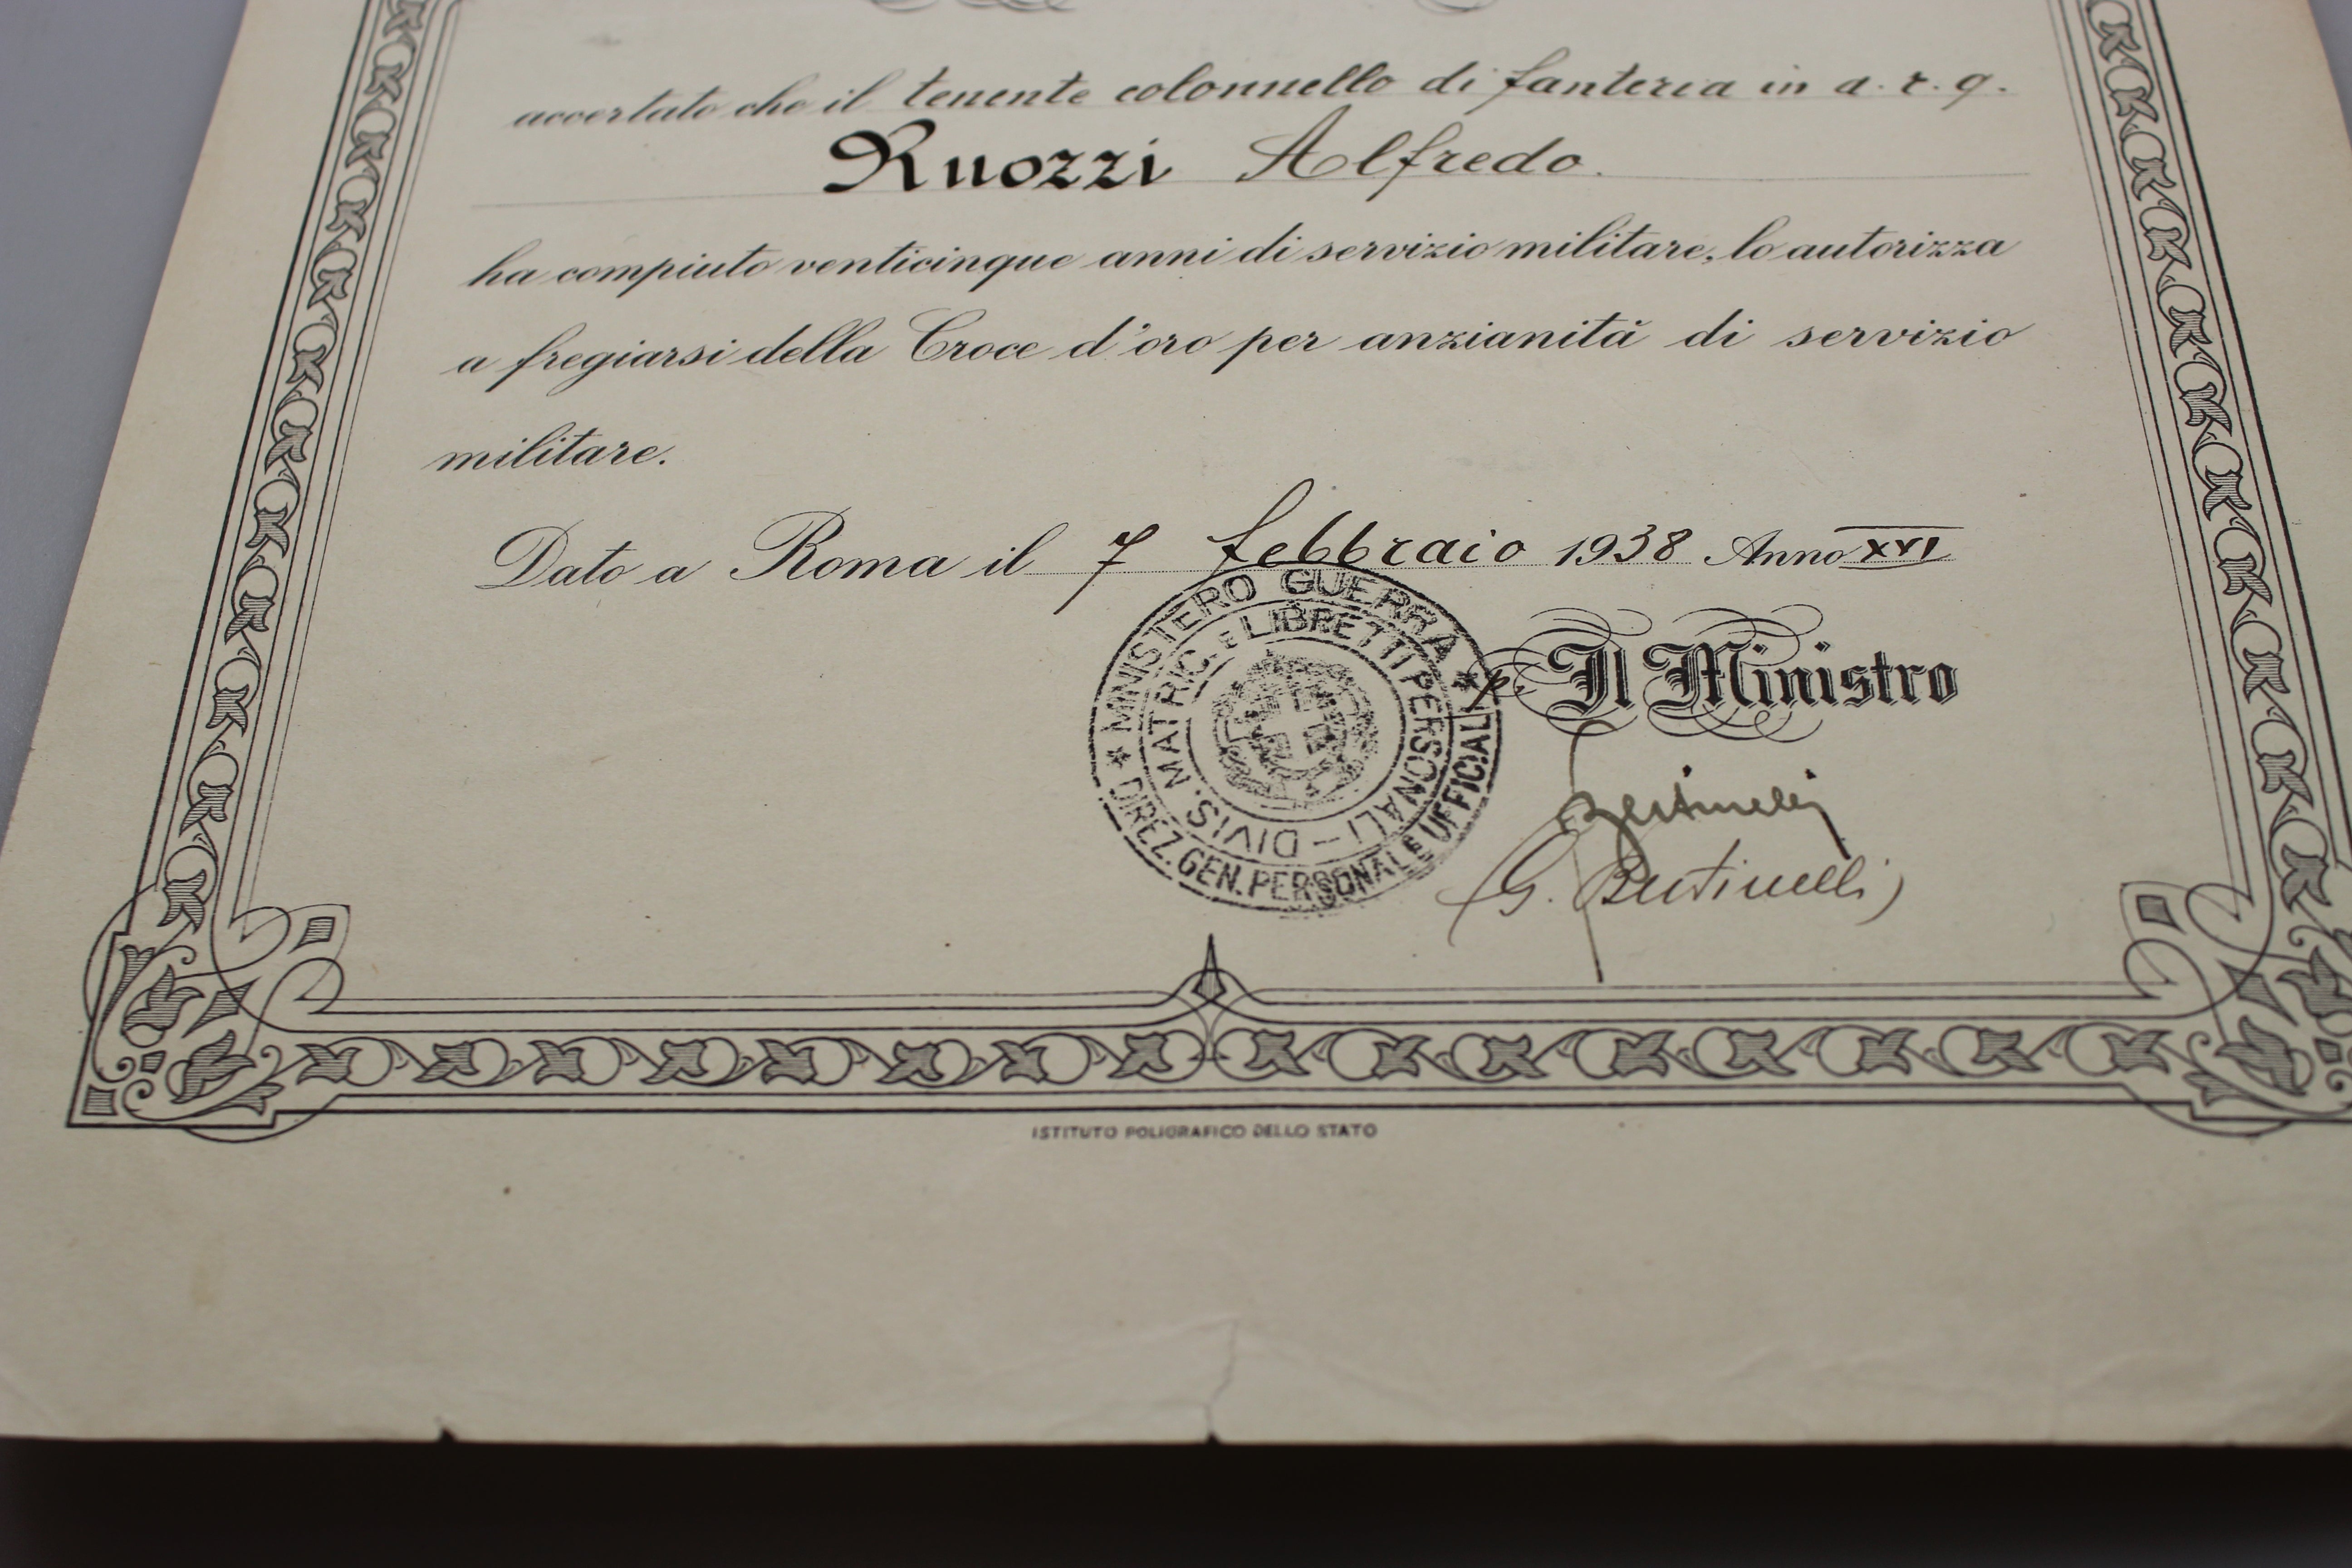 accertato che il tenente colonnello di fanteria in a. r. q.
Ruozzi Alfredo.
ha compiuto venticinque anni di servizio militare, lo autorizza
a fregiarsi della Croce d'oro per anzianità di servizio
militare.
Dato a Roma il 7 febbraio 1938 Anno XVI
★ MINISTERO GUERRA ★
DIREZ. GEN. PERSONALE UFFICIALI
DIVIS. MATRIC. E LIBRETTI PERSONALI –
p. Il Ministro
(G. Bertinelli)
ISTITUTO POLIGRAFICO DELLO STATO